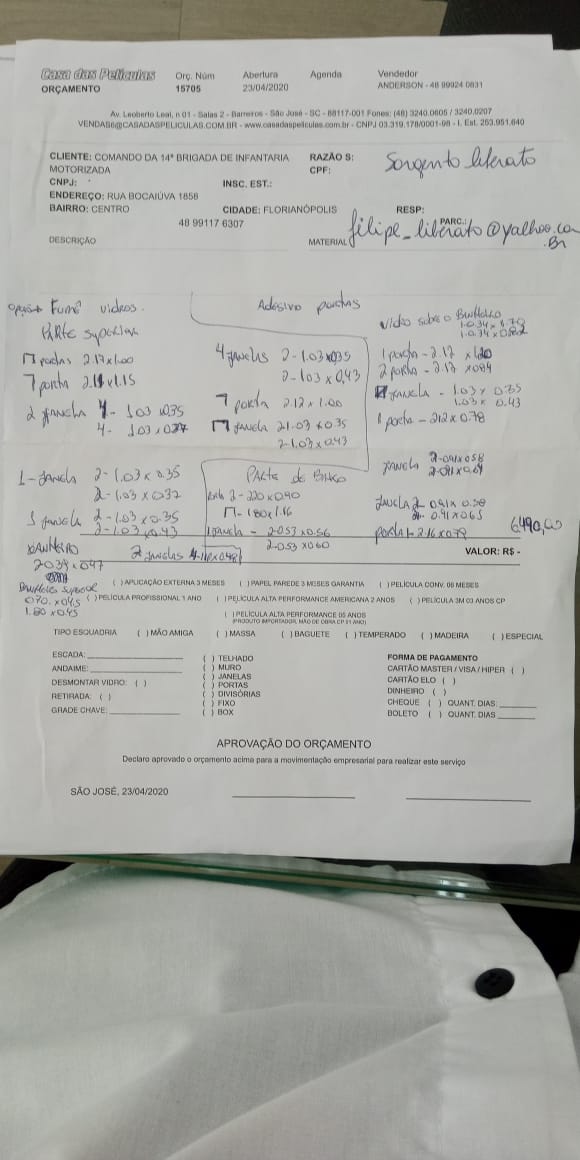 Casa das Películas
ORÇAMENTO
Orç. Núm
15705
Abertura
23/04/2020
Agenda
Vendedor
ANDERSON - 48 99924 0831
Av. Leoberto Leal, n 01 - Salas 2 - Barreiros - São José - SC - 88117-001 Fones: (48) 3240.0605 / 3240.0207
VENDAS6@CASADASPELICULAS.COM.BR - www.casadaspeliculas.com.br - CNPJ 03.319.178/0001-98 - I. Est. 253.951.640
CLIENTE: COMANDO DA 14ª BRIGADA DE INFANTARIA
MOTORIZADA
RAZÃO S:
CPF:
Sargento liberato
CNPJ:
INSC. EST.:
ENDEREÇO: RUA BOCAIÚVA 1858
BAIRRO: CENTRO
CIDADE: FLORIANÓPOLIS
RESP:
48 99117 6307
PARC.:
DESCRIÇÃO
MATERIAL
filipe_liberato@yahoo.co
.Br
Fumê vidros.
PARTE Superior
portas 2.17x1.00
7 porta 1.15
2 janela 4- 1.03 x0.35
4- 1.03
1- Janela 2-1.03 x 0.35
2-1.03x0.32
janela 2-1.03 x 0.35
2-1.03 x 0.43
Adesivo portas
4 janelas 2-1.03x0.35
2-1.03 x 0.43
7 porta 2.12 x 1.00
janela 2 1.03 x 0.35
2-1.03 x 0.43
PARTE de
2-220 x 0.90
1 janela - 2-0.53 x 0.56
2-0.53 x 0.60
2 janelas
Vidro sobre o
1 porta - 2.12
2 porta - 2.12 x 0.84
janela - 1.03 x 0.35
1.03 x 0.43
1 porta - 2.12 x 0.78
janela 2-0.41 x 0.58
janela 2- 0.41 x 0.58
0.41 x 0.65
porta 1- 2.16 x 0.79
6.490,00
VALOR: R$ -
BANHEIRO
superior
1.80 x 0.45
( ) APLICAÇÃO EXTERNA 3 MESES ( ) PAPEL PAREDE 3 MESES GARANTIA ( ) PELÍCULA CONV. 06 MESES
( ) PELÍCULA PROFISSIONAL 1 ANO ( ) PELÍCULA ALTA PERFORMANCE AMERICANA 2 ANOS ( ) PELÍCULA 3M 03 ANOS CP
( ) PELÍCULA ALTA PERFORMANCE 05 ANOS
(PRODUTO IMPORTADOR, MÃO DE OBRA CP 01 ANO)
TIPO ESQUADRIA ( ) MÃO AMIGA ( ) MASSA ( ) BAGUETE ( ) TEMPERADO ( ) MADEIRA ( ) ESPECIAL
ESCADA:
ANDAIME:
DESMONTAR VIDRO: ( )
RETIRADA: ( )
GRADE CHAVE:
( ) TELHADO
( ) MURO
( ) JANELAS
( ) PORTAS
( ) DIVISÓRIAS
( ) FIXO
( ) BOX
FORMA DE PAGAMENTO
CARTÃO MASTER / VISA / HIPER ( )
CARTÃO ELO ( )
DINHEIRO ( )
CHEQUE ( ) QUANT. DIAS:
BOLETO ( ) QUANT. DIAS
APROVAÇÃO DO ORÇAMENTO
Declaro aprovado o orçamento acima para a movimentação empresarial para realizar este serviço
SÃO JOSÉ, 23/04/2020